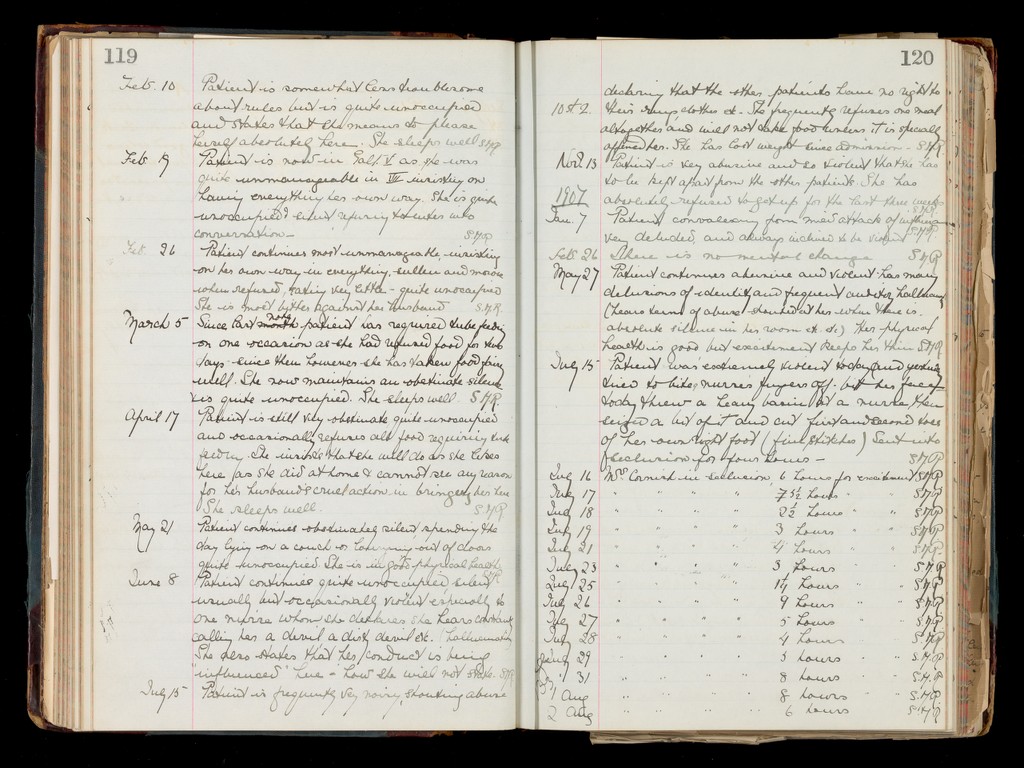 119
Feb. 10 Patient is somewhat less troublesome
about rules but is quite unoccupied
and states that she means to please
herself absolutely here. She sleeps well S.H.R.
Feb 19 Patient is now in Gal: V as she was
quite unmanageable in III insisting on
having everything her own way. She is quite
unoccupied refusing to enter into
conversation — S.H.R.
Feb. 26 Patient continues most unmanageable, insisting
on her own way in everything, sullen and morose
when refused, eating very little - quite unoccupied
She is most bitter against her husband S.H.R.
March 5 Since last note month patient has required tube feeding
on one occasion as she had refused food for two
days - since then however she has taken food fairly
well. She now maintains an obstinate silence
is quite unoccupied. She sleeps well S.H.R.
April 17 Patient is still very obstinate quite unoccupied
and occasionally refuses all food requiring tube
feeding. She insists that she will do as she likes
here (as she did at home & cannot see any reason
for her husband's cruel action in bringing her here
She sleeps well. S.H.R.
May 21 Patient continues obstinately silent, spending the
day lying on a couch or lounging out of doors
quite unoccupied. She is in good physical health S.H.R.
June 8 Patient continues quite unoccupied, silent
usually but occasionally violent especially to
one nurse whom she declares she hears constantly
calling her a devil a dirty devil etc. (hallucination)
She also states that her conduct is being
"influenced" here - how she will not state. S.H.R.
July 15 Patient is frequently very noisy, shouting abuse
120
declaring that the other patients have no right to
Oct 2. their clothes etc. She frequently refuses one meal
altogether and will not take food unless it is specially
offered her. She has lost weight since admission - S.H.R.
Nov. 13 Patient is very abusive and so violent that she has
to be kept apart from the other patients. She has
1907 absolutely refused to get up for the last three weeks S.H.R.
Jan. 7 Patient convalescing from mild attack of
very deluded, and always inclined to be violent S.H.R.
Feb 26 There is no mental change S.H.R.
May 27 Patient continues abusive and violent - has many
delusions of identity and frequent auditory halluc.ns
(hears terms of abuse shouted at her when there is
absolute silence in her room etc. etc) Her physical
health is good but excitement keeps her thin S.H.R.
July 15 Patient was extremely violent today and yesterday
tried to bite nurse's fingers off. but her
today threw a heavy basin at a nurse, then
seized a bit of it and cut first and second toes
of her own right foot (five stitches) Sent into
seclusion for four hours — S.H.R.
July 16 Mrs Cornish in seclusion, 6 hours for excitement S.H.R.
July 17 " " " " 7½ hours " " S.H.R.
July 18 " " " " 2½ hours " " S.H.R.
July 19 " " " " 3 hours " " S.H.R.
July 21 " " " " 4 hours " " S.H.R.
July 23 " " " " 3 hours " " S.H.R.
July 25 " " " " hours " " S.H.R.
July 26 " " " " 9 hours " " S.H.R.
July 27 " " " " 5 hours " " S.H.R.
July 28 " " " " 4 hours " " S.H.R.
July 29 " " " " 3 hours " " S.H.R.
July 31 " " " " 8 hours " " S.H.R.
1 Aug " " " " 8 hours " " S.H.R.
2 Aug " " " " 6 hours " " S.H.R.